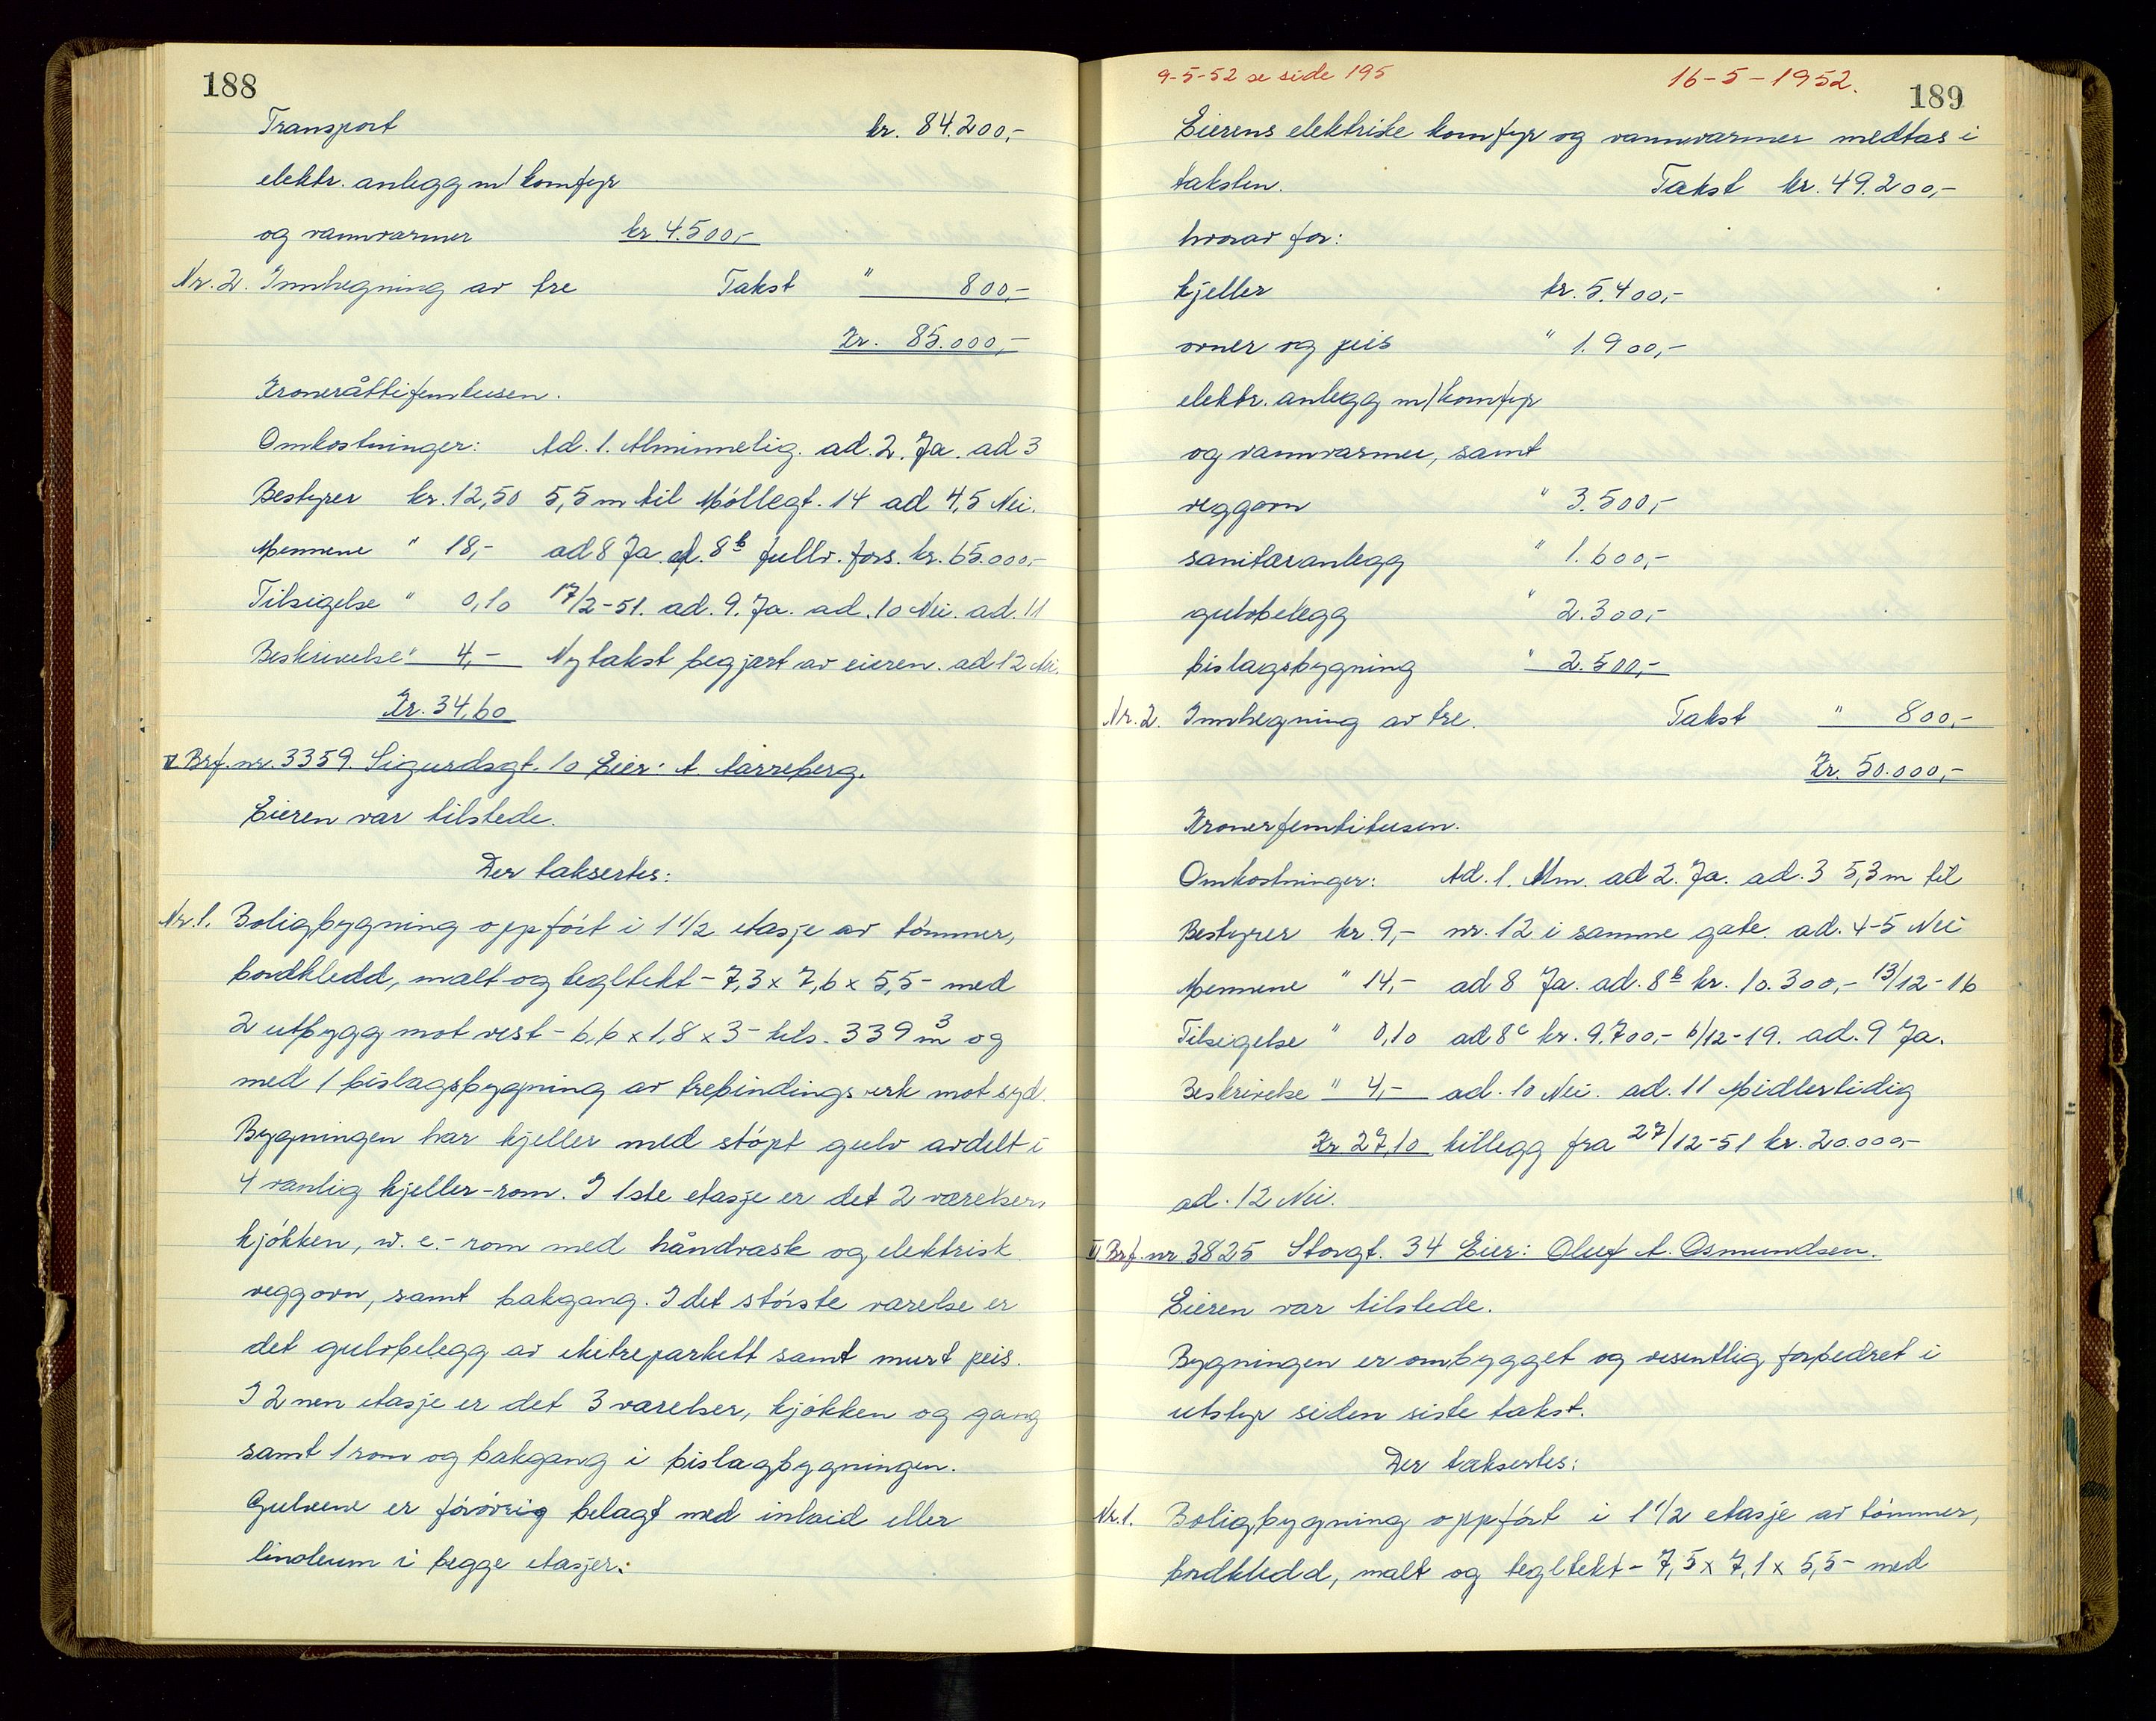 188
Transport kr. 84.200,-
elektr. anlegg m/komfyr
og vannvarmer kr 4.500,-
Nr. 2. Innhegning av tre Takst " 800,-
Kr. 85.000,-
Kroneråttifemtusen.
Omkostninger: Ad. 1. Alminnelig. ad. 2. Ja. ad 3
Bestyrer kr. 12,50 5,5 m til Møllegt. 14 ad 4,5 Nei.
Mennene " 18,- ad 8 Ja ad. 8b fullv. fors. kr. 65.000,-
Tilsigelse " 0,10 17/2-51. ad. 9. Ja. ad. 10 Nei. ad. 11
Beskrivelse " 4,- Ny takst begjært av eieren. ad 12 Nei.
Kr. 34,60
V Brf. nr. 3359 Sigurdsgt. 10 Eier: A. Aarreberg.
Eieren var tilstede.
Der taksertes:
Nr. 1. Boligbygning oppført i 1 1/2 etasje av tømmer,
bordkledd, malt og tegltekt - 7,3 x 7,6 x 5,5 - med
2 utbygg mot vest - 6,6 x 1,8 x 3 - tils. 339 m3 og
med 1 bislagsbygning av trebindingsverk mot syd.
Bygningen har kjeller med støpt gulv avdelt i
4 vanlig kjeller-rom. I 1ste etasje er det 2 værelser,
kjøkken, w.c.-rom med håndvask og elektrisk
veggovn, samt bakgang. I det største værelse er
det gulvbelegg av eketreparkett samt murt peis.
I 2nen etasje er det 3 værelser, kjøkken og gang
samt 1 rom og bakgang i bislagbygningen.
Gulvene er førøvrig belagt med inlaid eller
linoleum i begge etasjer:
9-5-52 se side 195 16-5-1952. 189
Eierens elektriske komfyr og vannvarmer medtas i
taksten. Takst kr. 49.200,-
hvorav for:
kjeller kr. 5.400,-
ovner og peis " 1.900,-
elektr. anlegg m/komfyr
og vannvarmer, samt
veggovn " 3.500,-
sanitæranlegg " 1.600,-
gulvbelegg " 2.300,-
bislagsbygning " 2.500,-
Nr. 2. Innhegning av tre. Takst " 800,-
Kr. 50.000,-
Kronerfemtitusen.
Omkostninger: Ad. 1. Alm. ad 2. Ja. ad. 3 5,3 m til
Bestyrer kr 9,- nr. 12 i samme gate. ad. 4-5 Nei
Mennene " 14,- ad 8 Ja. ad. 8b kr. 10.300,- 13/12-16
Tilsigelse " 0,10 ad 8c kr. 9.700,- 6/12-19. ad. 9 Ja.
Beskrivelse " 4,- ad. 10 Nei. ad. 11 Midlertidig
Kr 27,10 tillegg fra 27/12-51 kr. 20.000,-
ad. 12 Nei.
VI Brf. nr. 3825 Storgt. 34 Eier: Oluf A. Osmundsen.
Eieren var tilstede.
Bygningen er ombygget og vesentlig forbedret i
utstyr siden siste takst.
Der taksertes:
Nr. 1. Boligbygning oppført i 1 1/2 etasje av tømmer,
bordkledd, malt og tegltekt - 7,5 x 7,1 x 5,5 - med